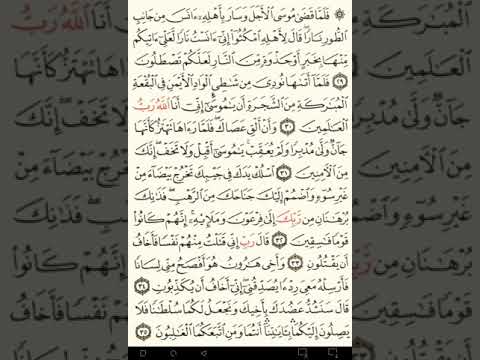 ۞ فَلَمَّا قَضَىٰ مُوسَى ٱلْأَجَلَ وَسَارَ بِأَهْلِهِۦٓ ءَانَسَ مِن جَانِبِ
ٱلطُّورِ نَارًا قَالَ لِأَهْلِهِ ٱمْكُثُوٓا۟ إِنِّىٓ ءَانَسْتُ نَارًا لَّعَلِّىٓ ءَاتِيكُم
مِّنْهَا بِخَبَرٍ أَوْ جَذْوَةٍ مِّنَ ٱلنَّارِ لَعَلَّكُمْ تَصْطَلُونَ
٢٩ فَلَمَّآ أَتَىٰهَا نُودِىَ مِن شَـٰطِئِ ٱلْوَادِ ٱلْأَيْمَنِ فِى ٱلْبُقْعَةِ
ٱلْمُبَـٰرَكَةِ مِنَ ٱلشَّجَرَةِ أَن يَـٰمُوسَىٰٓ إِنِّىٓ أَنَا ٱللَّهُ رَبُّ
ٱلْعَـٰلَمِينَ ٣٠ وَأَنْ أَلْقِ عَصَاكَ فَلَمَّا رَءَاهَا تَهْتَزُّ كَأَنَّهَا
جَآنٌّ وَلَّىٰ مُدْبِرًا وَلَمْ يُعَقِّبْ يَـٰمُوسَىٰٓ أَقْبِلْ وَلَا تَخَفْ إِنَّكَ
مِنَ ٱلْـَٔامِنِينَ ٣١ ٱسْلُكْ يَدَكَ فِى جَيْبِكَ تَخْرُجْ بَيْضَآءَ مِنْ
غَيْرِ سُوٓءٍ وَٱضْمُمْ إِلَيْكَ جَنَاحَكَ مِنَ ٱلرَّهْبِ فَذَٰنِكَ
بُرْهَـٰنَانِ مِن رَّبِّكَ إِلَىٰ فِرْعَوْنَ وَمَلَإِي۟هِۦٓ إِنَّهُمْ كَانُوا۟
قَوْمًا فَـٰسِقِينَ ٣٢ قَالَ رَبِّ إِنِّى قَتَلْتُ مِنْهُمْ نَفْسًا فَأَخَافُ
أَن يَقْتُلُونِ ٣٣ وَأَخِى هَـٰرُونُ هُوَ أَفْصَحُ مِنِّى لِسَانًا
فَأَرْسِلْهُ مَعِىَ رِدْءًا يُصَدِّقُنِىٓ إِنِّىٓ أَخَافُ أَن يُكَذِّبُونِ ٣٤
قَالَ سَنَشُدُّ عَضُدَكَ بِأَخِيكَ وَنَجْعَلُ لَكُمَا سُلْطَـٰنًا فَلَا
يَصِلُونَ إِلَيْكُمَا بِـَٔايَـٰتِنَآ أَنتُمَا وَمَنِ ٱتَّبَعَكُمَا ٱلْغَـٰلِبُونَ ٣٥